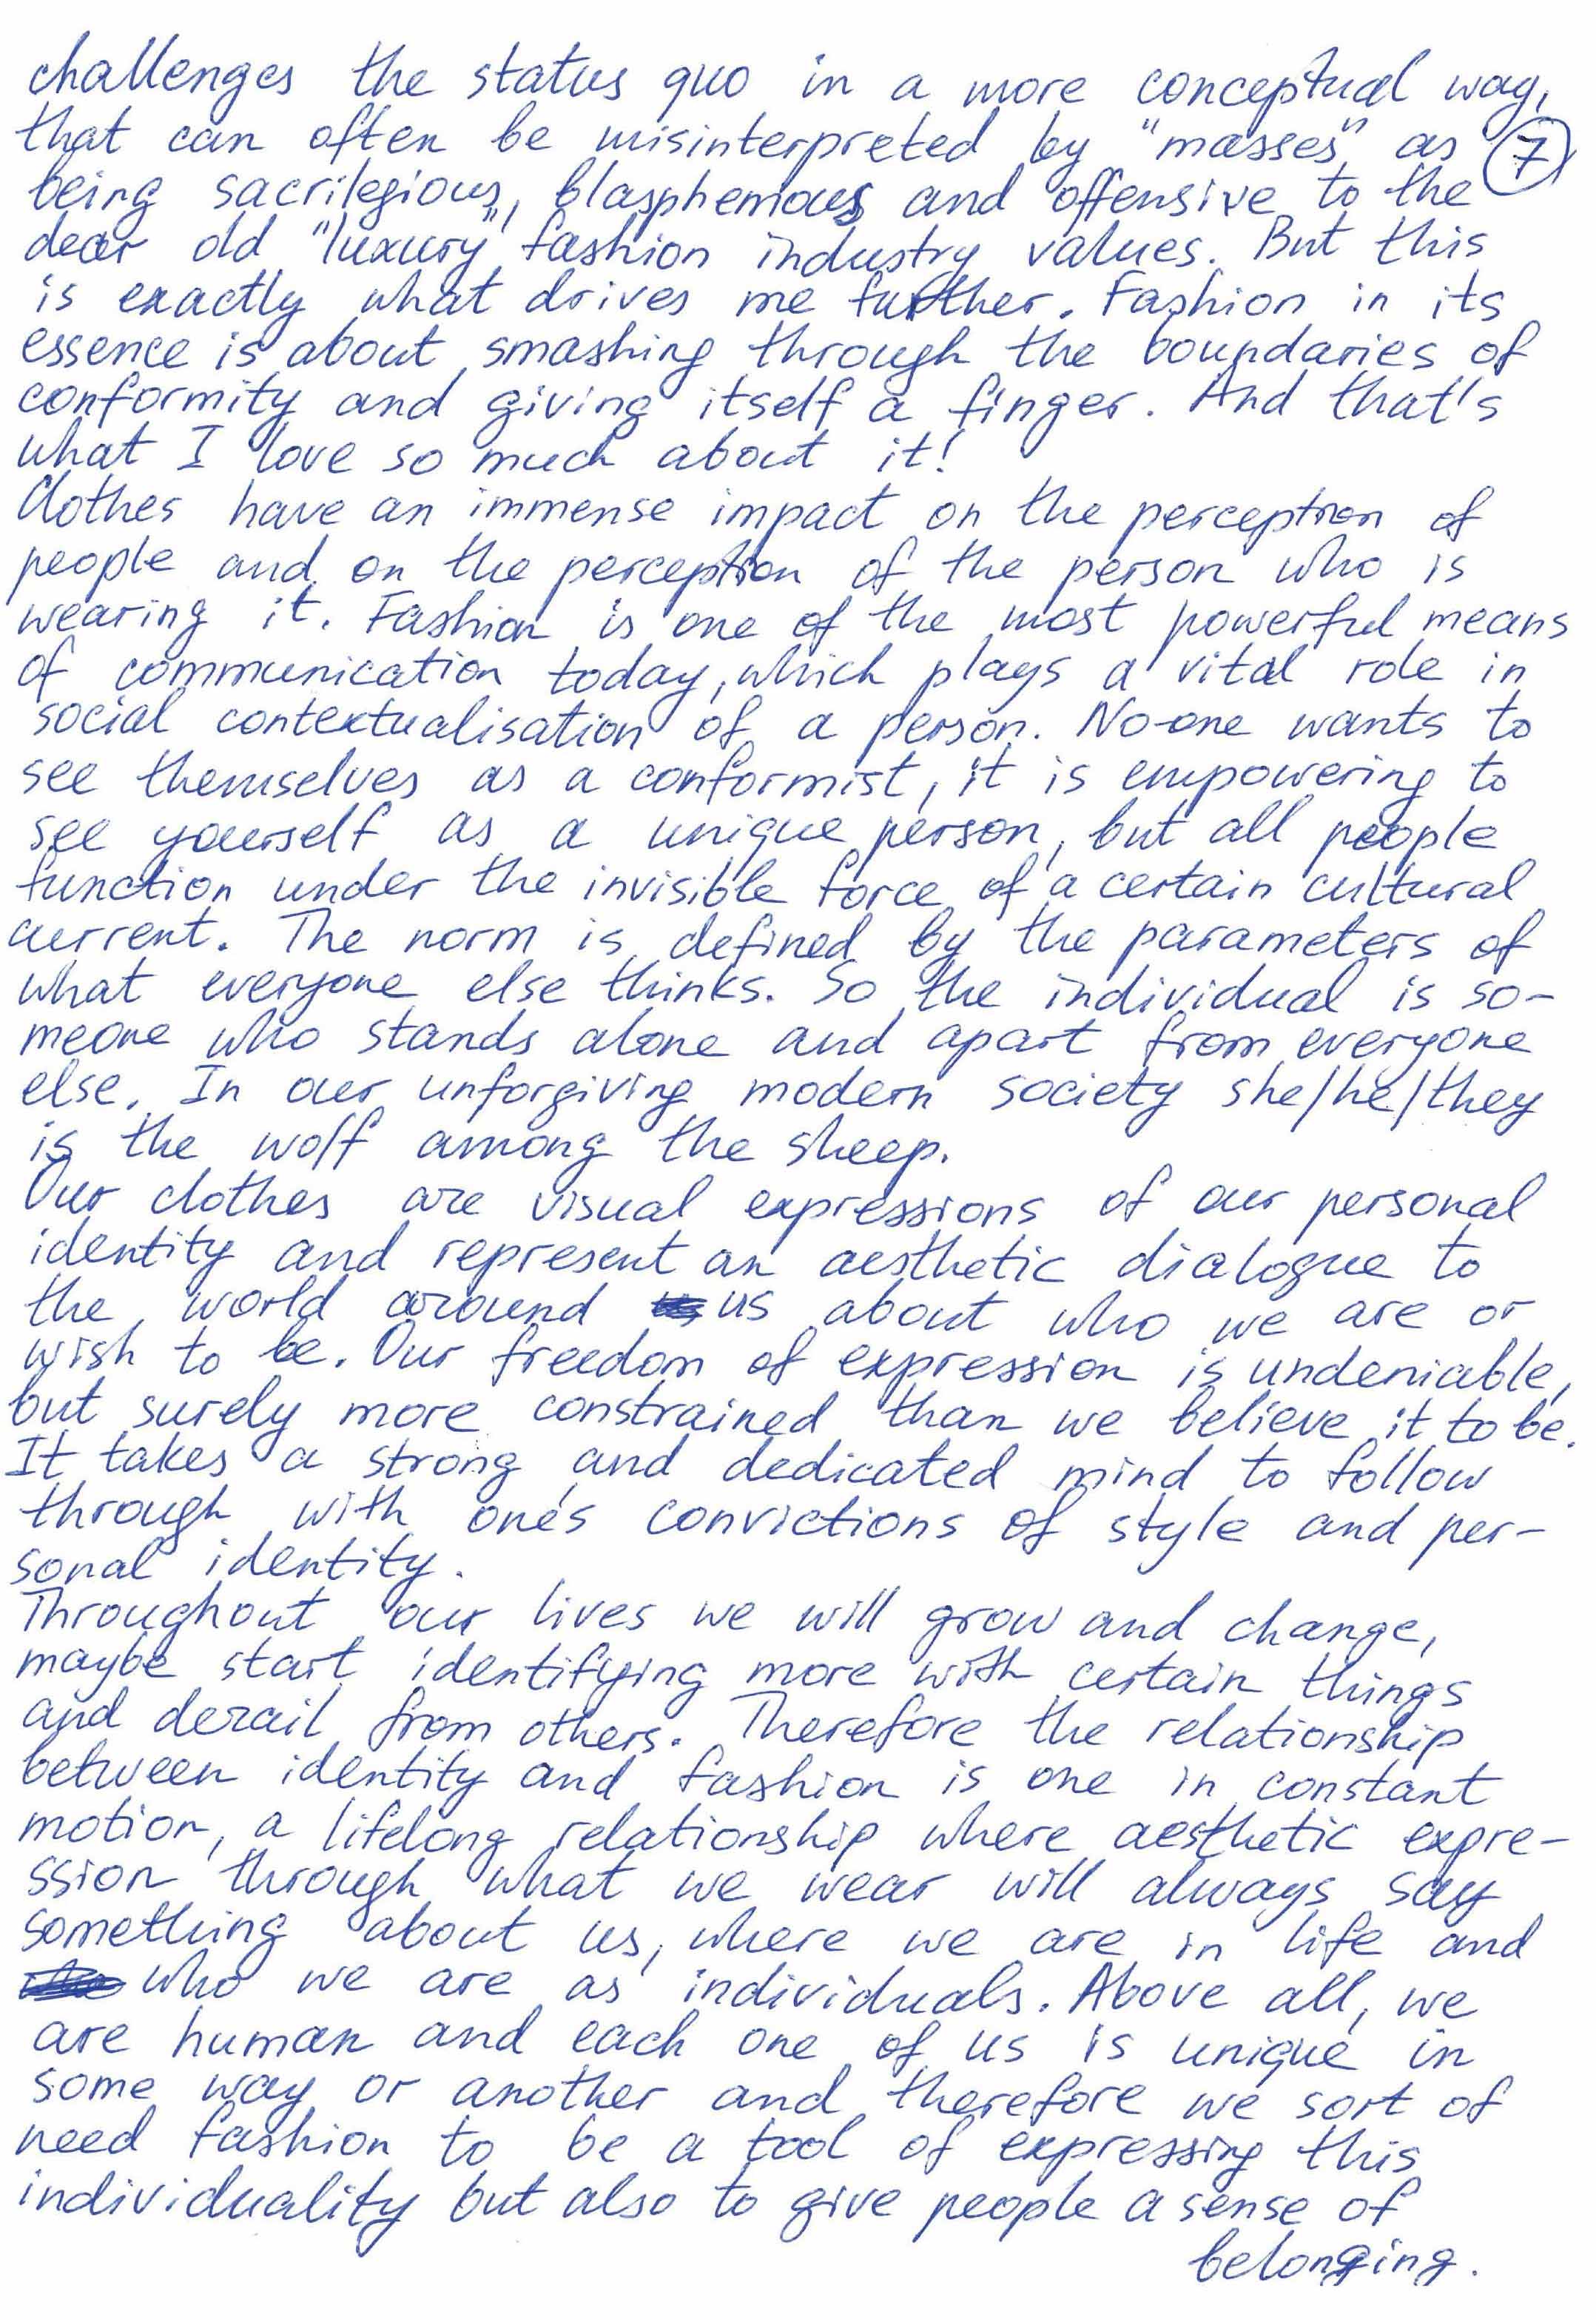 challenges the status quo in a more conceptual way,
that can often be misinterpreted by "masses" as
7
being sacrilegious, blasphemous and offensive to the
dear old "luxury" fashion industry values. But this
is exactly what drives me further. Fashion in its
essence is about smashing through the boundaries of
conformity and giving itself a finger. And that's
what I love so much about it!
Clothes have an immense impact on the perception of
people and on the perception of the person who is
wearing it. Fashion is one of the most powerful means
of communication today, which plays a vital role in
social contextualisation of a person. No-one wants to
see themselves as a conformist, it is empowering to
see yourself as a unique person, but all people
function under the invisible force of a certain cultural
current. The norm is defined by the parameters of
what everyone else thinks. So the individual is so-
meone who stands alone and apart from everyone
else. In our unforgiving modern society she/he/they
is the wolf among the sheep.
Our clothes are visual expressions of our personal
identity and represent an aesthetic dialogue to
the world around us about who we are or
wish to be. Our freedom of expression is undeniable,
but surely more constrained than we believe it to be.
It takes a strong and dedicated mind to follow
through with one's convictions of style and per-
sonal identity.
Throughout our lives we will grow and change,
maybe start identifying more with certain things
and derail from others. Therefore the relationship
between identity and fashion is one in constant
motion, a lifelong relationship where aesthetic expre-
ssion through what we wear will always say
something about us, where we are in life and
who we are as individuals. Above all, we
are human and each one of us is unique in
some way or another and therefore we sort of
need fashion to be a tool of expressing this
individuality but also to give people a sense of
belonging.